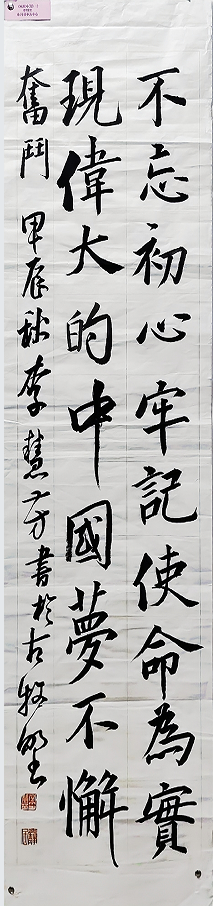 不忘初心牢記使命為實
現偉大的中國夢不懈
奮鬥 甲辰秋李慧芳書於古牧野